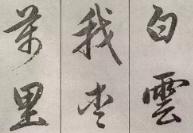 白雲
我
萬里